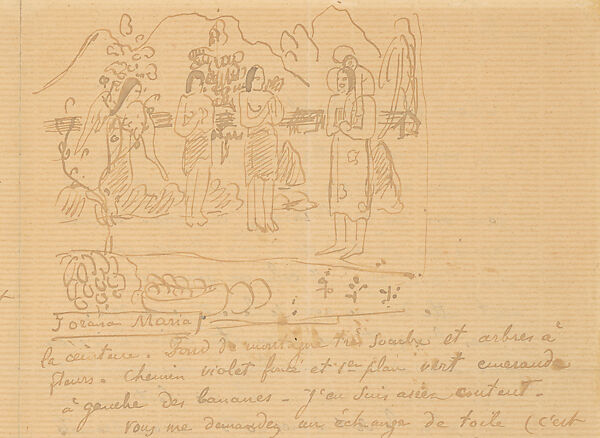 Iorana Maria
la ceinture. Fond de montagne très sombre et arbres à
fleurs. Chemin violet foncé et 1er plan vert émeraude
à gauche des bananes - J'en suis assez content -
Vous me demandez un échange de toile (c'est